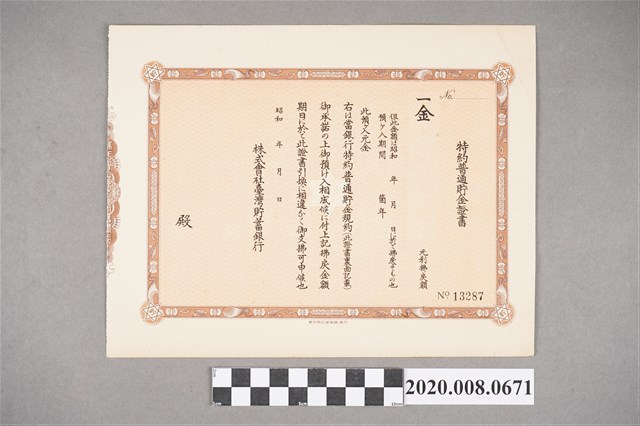 特約普通貯金證書
No.
一金
元利拂戾額
但此金額は昭和 年 月 日に於て拂戾すもの也
預ケ入期間 箇年
此預ケ入元金
右は當銀行特約普通貯金規約(此證書裏面記載)
御承諾の上御預け入相成候に付上記拂戾金額
期日に於て此證書引換に相違なく御支拂可申候也
昭和 年 月 日
株式會社臺灣貯蓄銀行
殿
No 13287
2020.008.0671